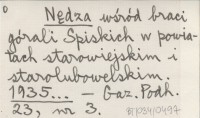 Nędza wśród braci
górali Spiskich w powia-
tach starowiejskim i
starolubowelskim.
1935... — Gaz. Podh.
23, nr 3.